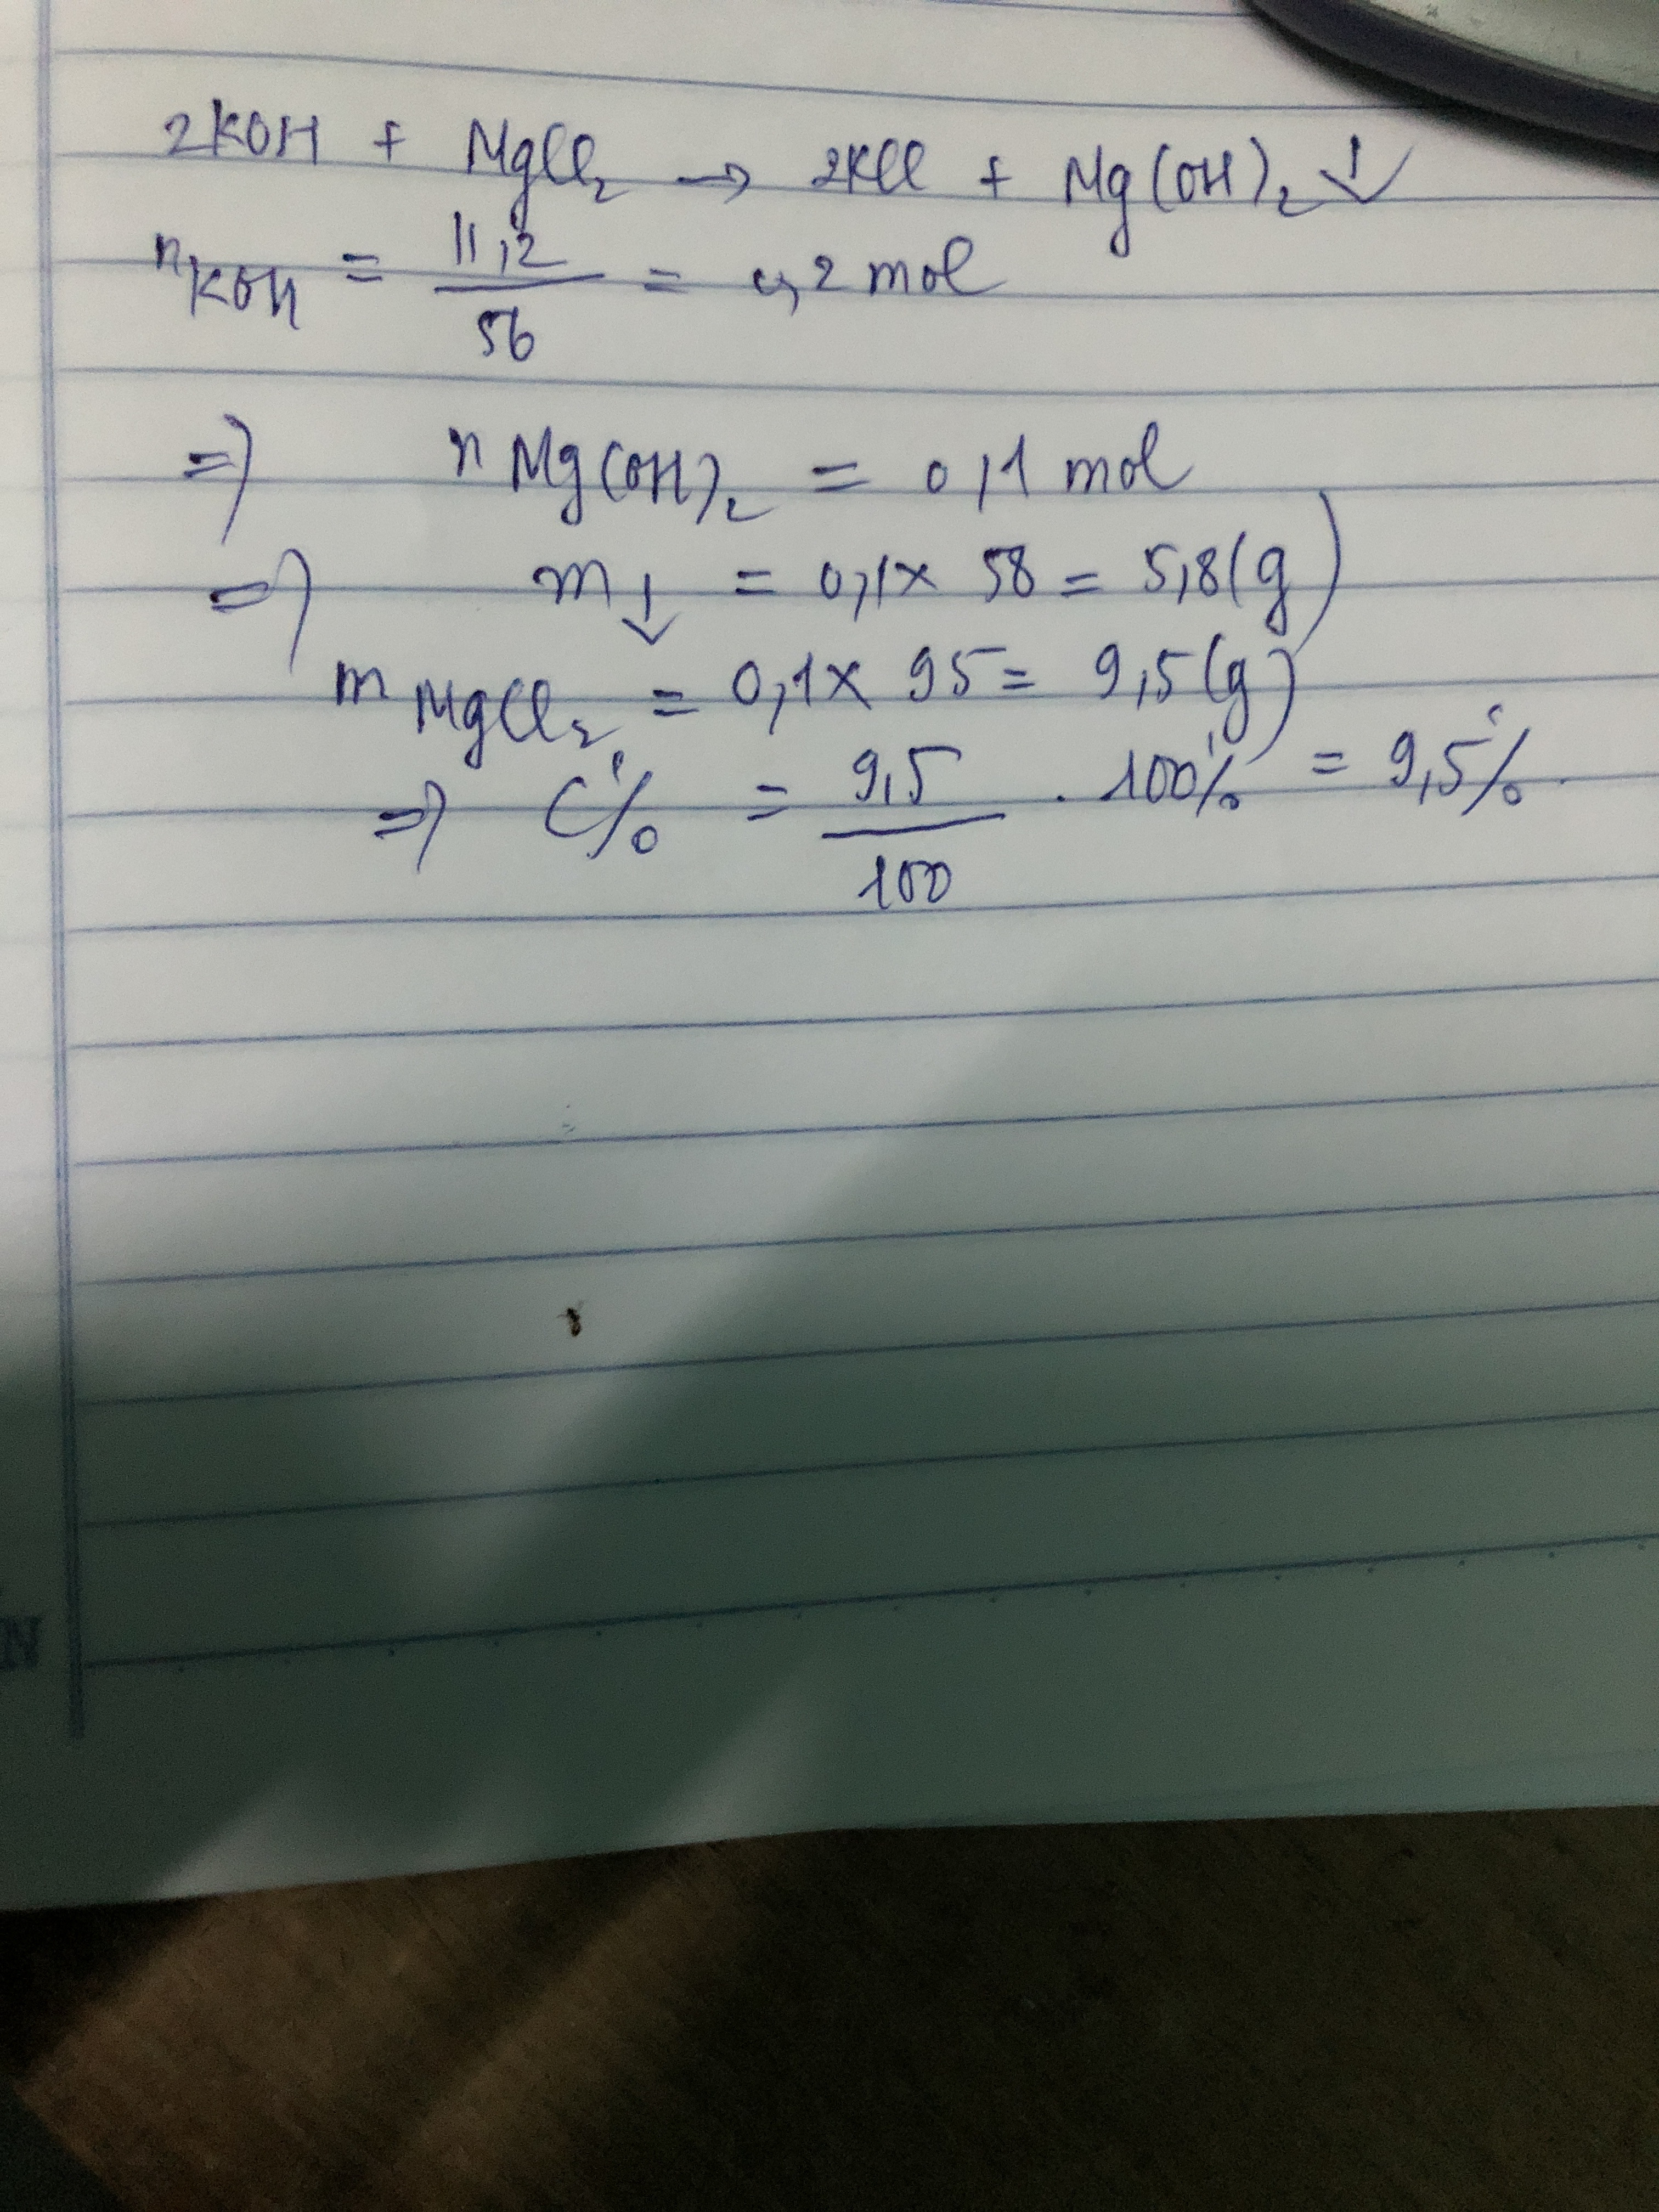 2KOH + MgCl2 → 2KCl + Mg(OH)2 ↓
nKOH = 11,2/56 = 0,2 mol
=> n Mg(OH)2 = 0,1 mol
=> m↓ = 0,1 x 58 = 5,8 (g)
m MgCl2 = 0,1 x 95 = 9,5 (g)
=> C% = 9,5/100 . 100% = 9,5%.